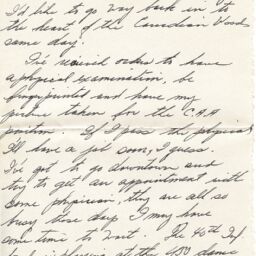 I'd like to go way back in to
the heart of the Canadian Woods
some day.
I've received orders to have
a physical examination, be
fingerprinted and have my
picture taken for the C.A.A
position. If I pass the physical
I'll have a job soon, I guess.
I've got to go downtown and
try to get an appointment with
some physician, they are all so
busy these days I may have
some time to wait. The 40th Inf
at the